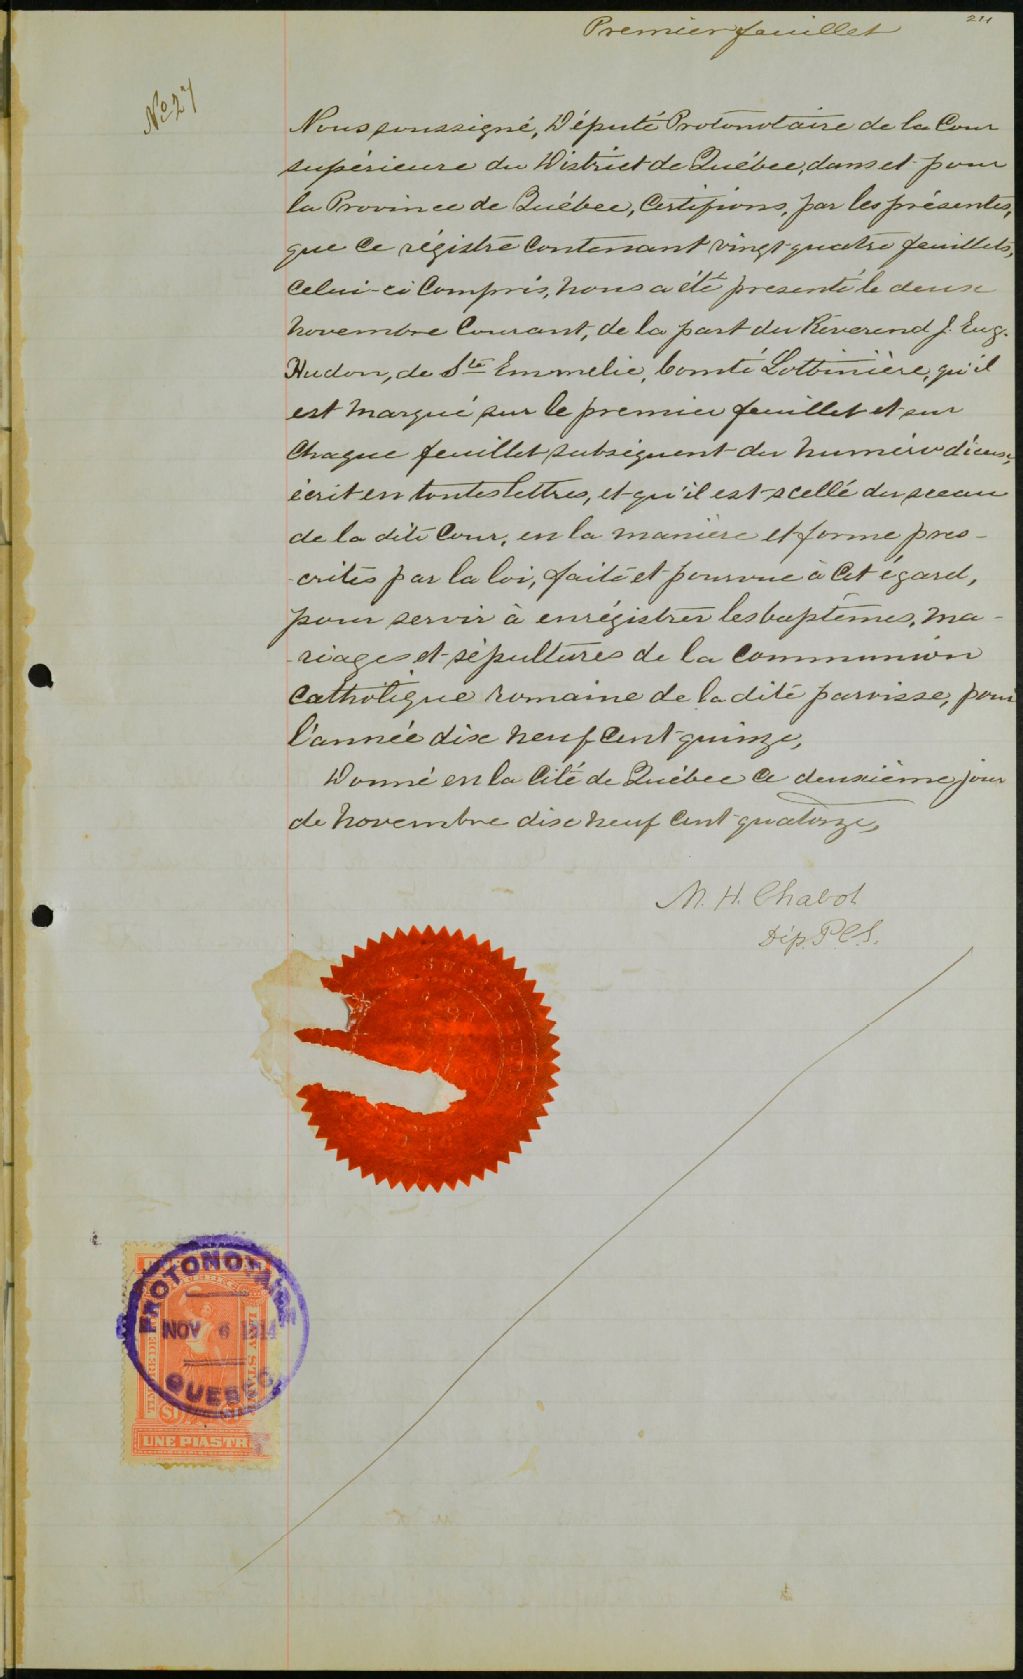 Premier feuillet
211
No 27
Nous soussigné, Député Protonotaire de la Cour
supérieure du District de Québec, dans et pour
la Province de Québec, Certifions, par les présentes,
que ce régistre contenant vingt-quatre feuillets,
celui-ci compris, nous a été presenté le deux
novembre courant, de la part du Réverend J. Eug.
Hudon, de Ste Emmelie, Comté Lotbinière, qu'il
est marqué sur le premier feuillet et sur
chaque feuillet subséquent du numéro d'iceux,
écrit en toutes lettres, et qu'il est scellé du sceau
de la dite Cour, en la manière et forme pres-
-crites par la loi, faite et pourvue à cet égard,
pour servir à enrégistrer les baptêmes, ma-
-riages et sépultures de la communion
catholique romaine de la dite paroisse, pour
l'année dix neuf cent quinze,
Donné en la Cité de Québec ce deuxième jour
de novembre dix neuf cent quatorze,
M. H. Chabot
Dép. P.C.S.
PROTONOTAIRE
NOV 6 1914
QUEBEC
TIMBRE DE
LAW ST
$1
UNE PIASTR